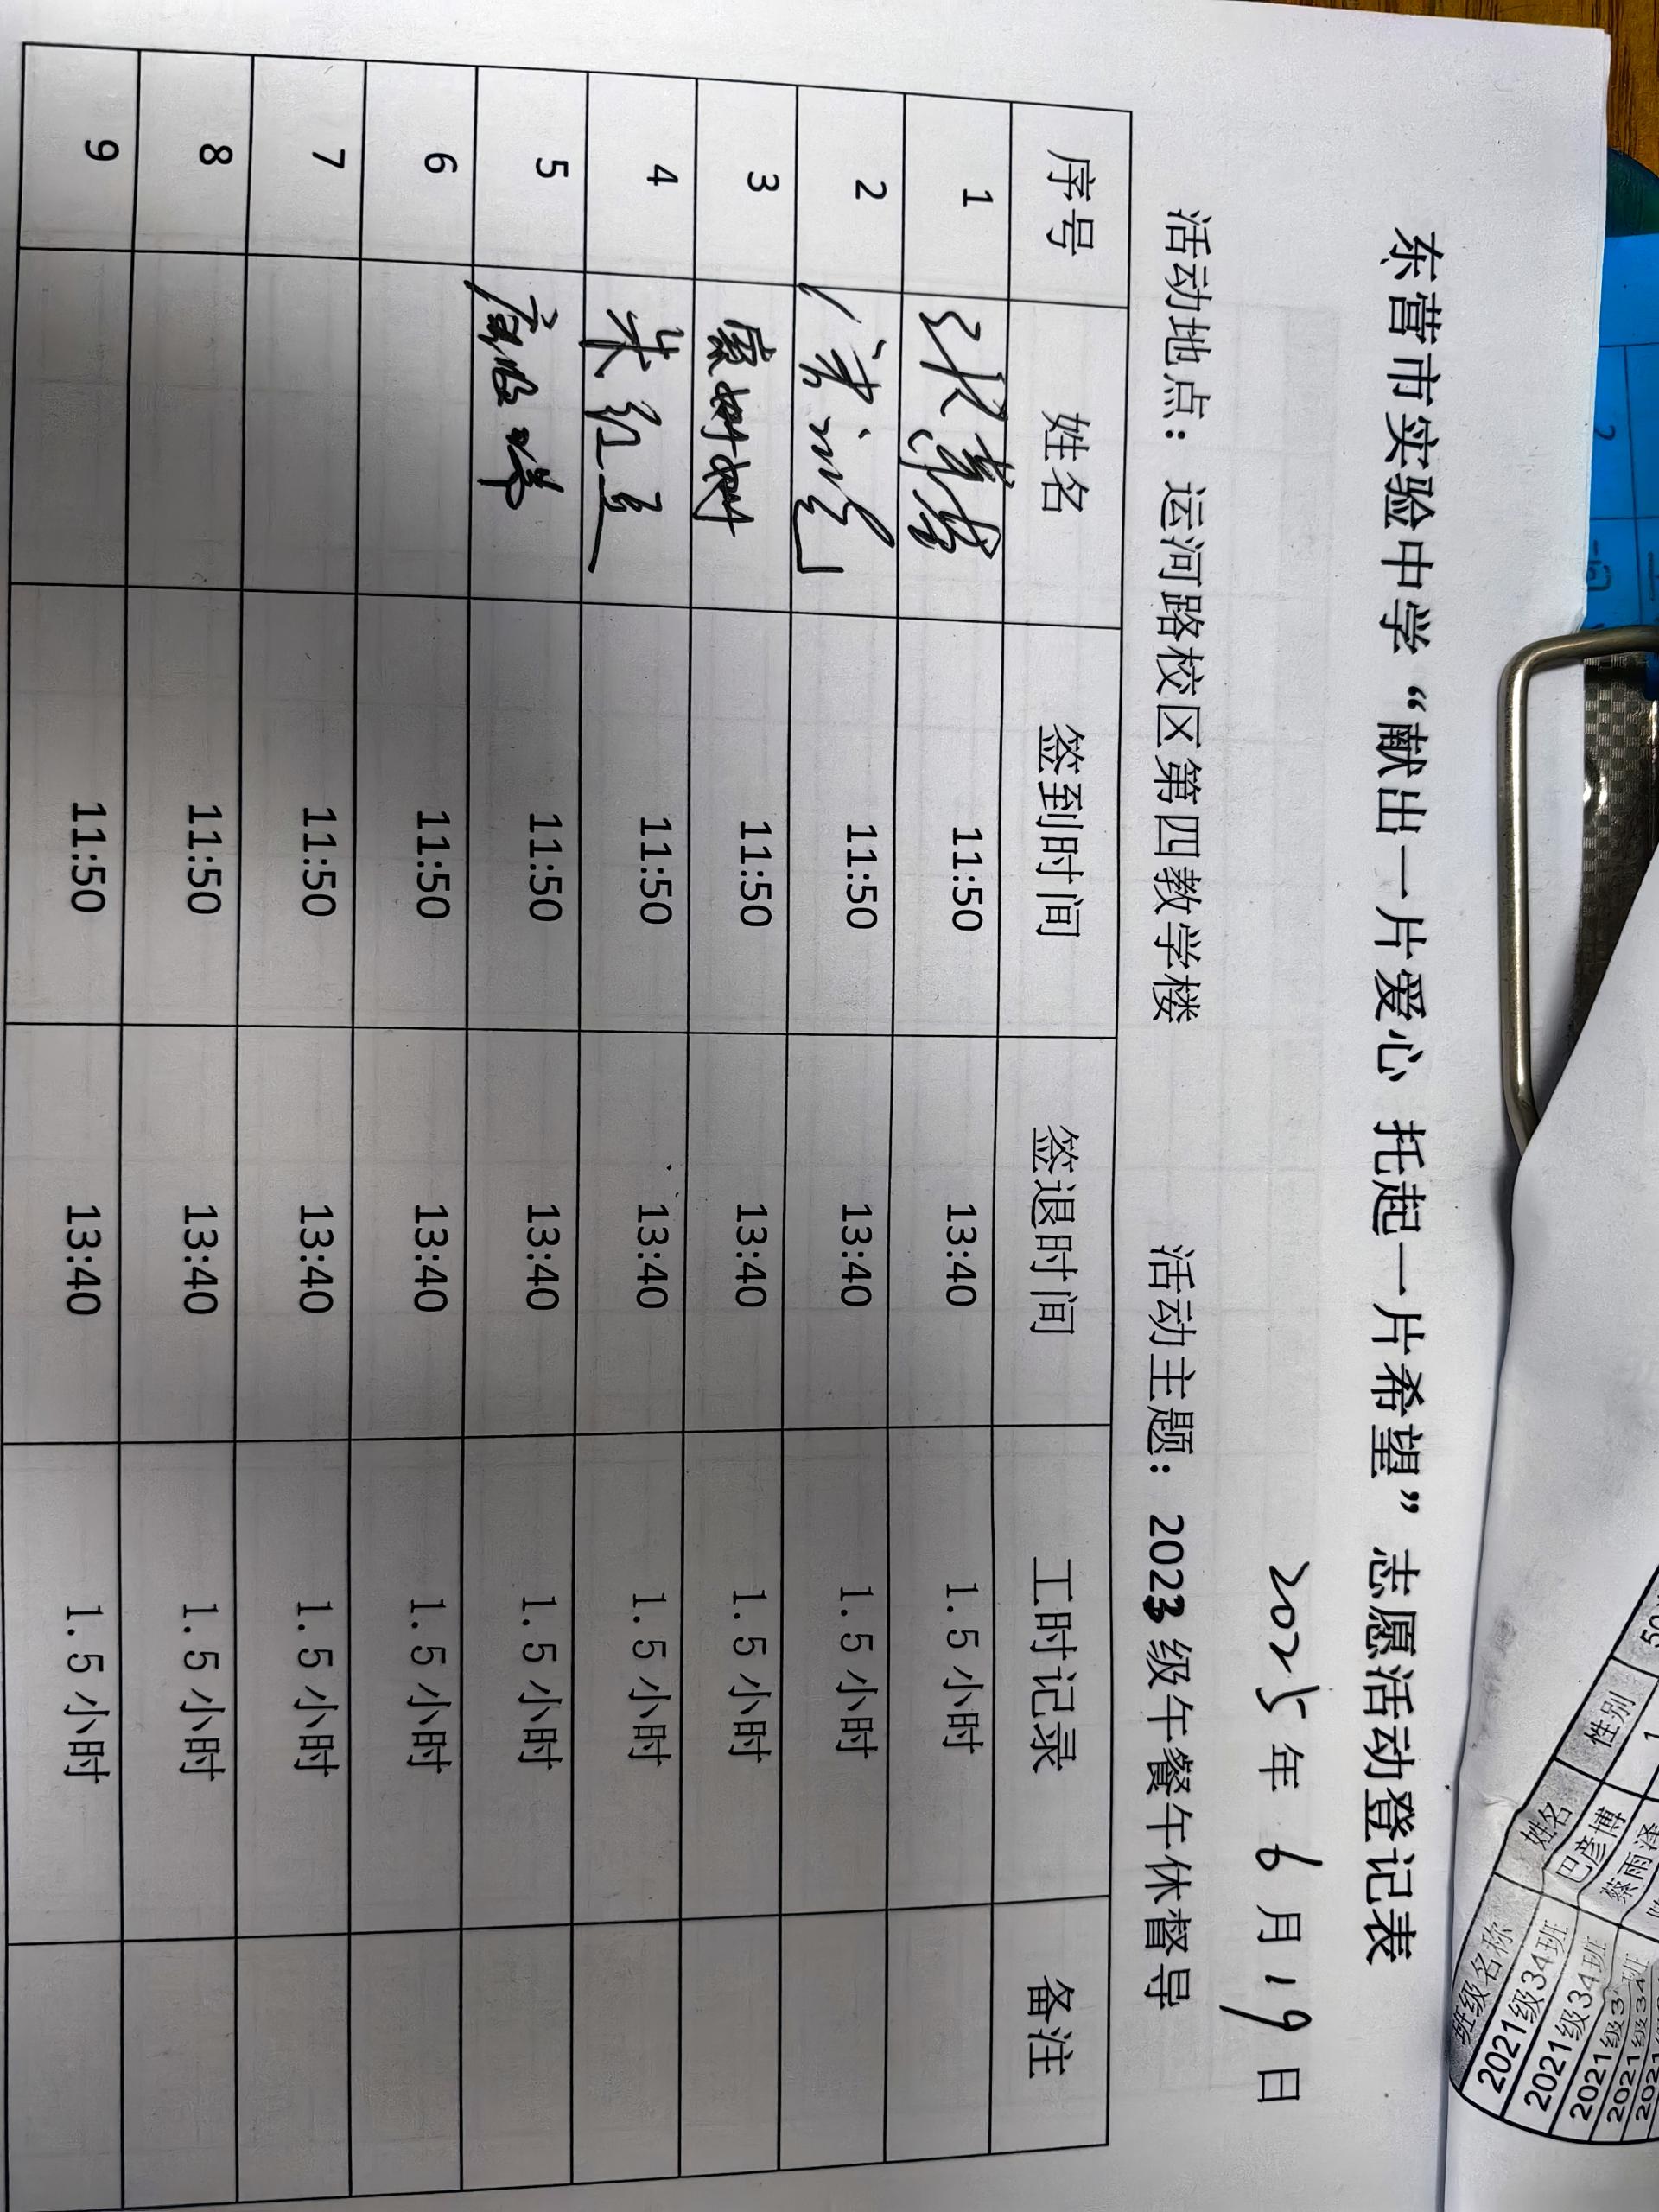 东营市实验中学“献出一片爱心 托起一片希望”志愿活动登记表
2025年6月19日
活动地点：运河路校区第四教学楼 活动主题：2023级午餐午休督导
序号 姓名 签到时间 签退时间 工时记录 备注
1 11:50 13:40 1.5小时
2 11:50 13:40 1.5小时
3 11:50 13:40 1.5小时
4 朱红 11:50 13:40 1.5小时
5 11:50 13:40 1.5小时
6 11:50 13:40 1.5小时
7 11:50 13:40 1.5小时
8 11:50 13:40 1.5小时
9 11:50 13:40 1.5小时
班级名称 姓名 性别
2021级34班 巴彦博 1
2021级34班 蔡雨泽
2021级3
2021级34班